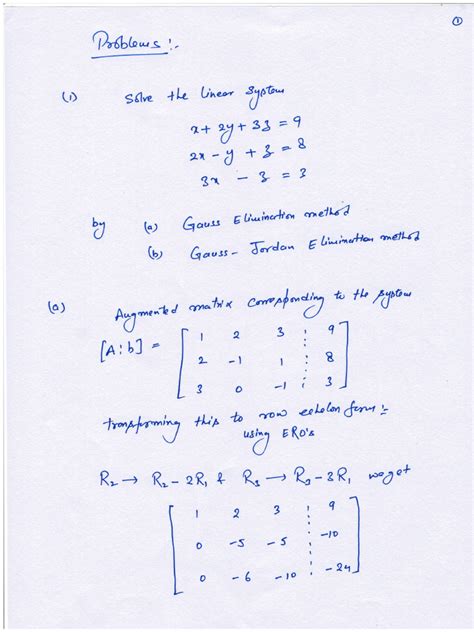 ①
Problems :-
(1) Solve the linear system
x + 2y + 3z = 9
2x - y + z = 8
3x - z = 3
by (a) Gauss Elimination method
(b) Gauss - Jordan Elimination method
(a) Augmented matrix corresponding to the system
[A:b] = [ 1 2 3 : 9 ]
2 -1 1 : 8
3 0 -1 : 3
transforming this to row echelon form :-
using ERO's
R₂ → R₂ - 2R₁ & R₃ → R₃ - 3R₁ we get
[ 1 2 3 : 9 ]
0 -5 -5 : -10
0 -6 -10 : -24